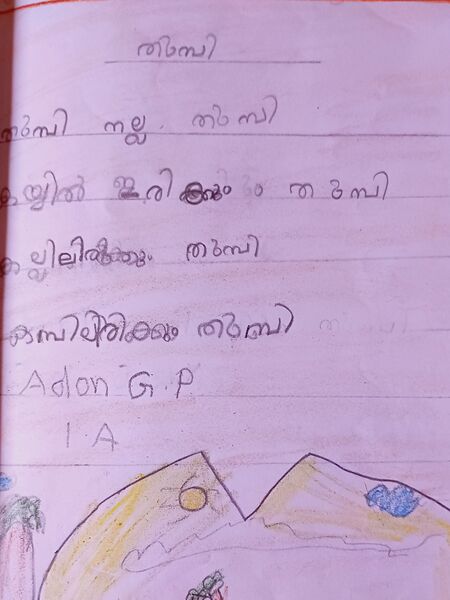 തുമ്പി
തുമ്പി നല്ല തുമ്പി
കയ്യിൽ ഇരിക്കും തുമ്പി
കല്ലിലിരിക്കും തുമ്പി
കമ്പിലിരിക്കും തുമ്പി
Adon G.P
1 A